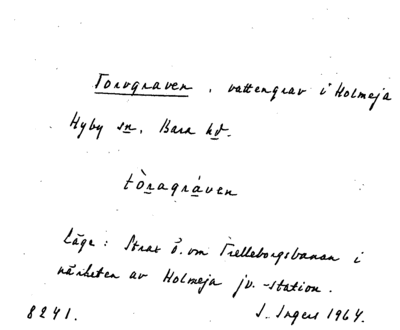 Torvgraven, vattengrav i Holmeja
Hyby sn, Bara hd.
tòragráven
Läge: Strax ö. om Trelleborgsbanan i
närheten av Holmeja jv.-station.
8241. I. Ingers 1964.